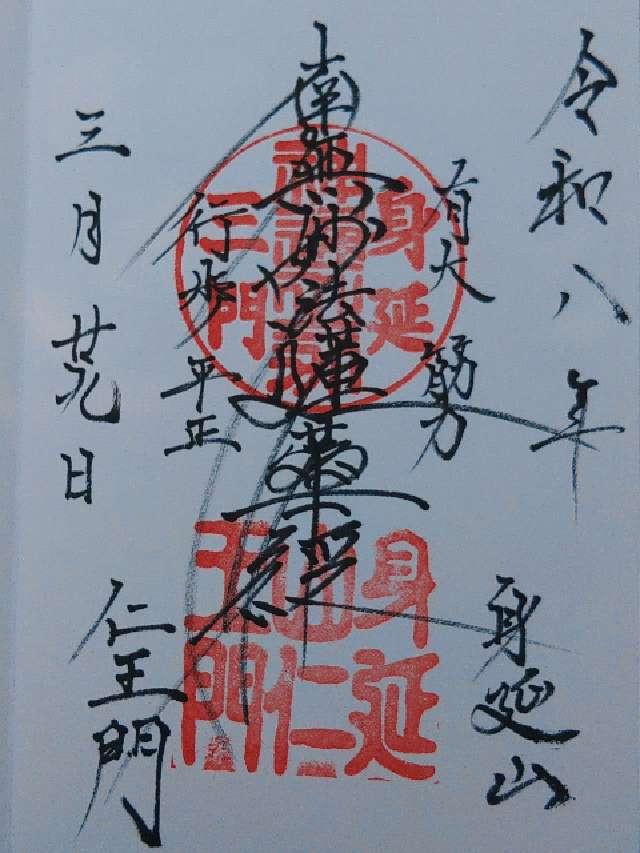 令和八年
身延山
有大筋力
南無妙法蓮華経
行歩平正
三月廿九日
仁王門
身延
三門
身延
山仁
王門